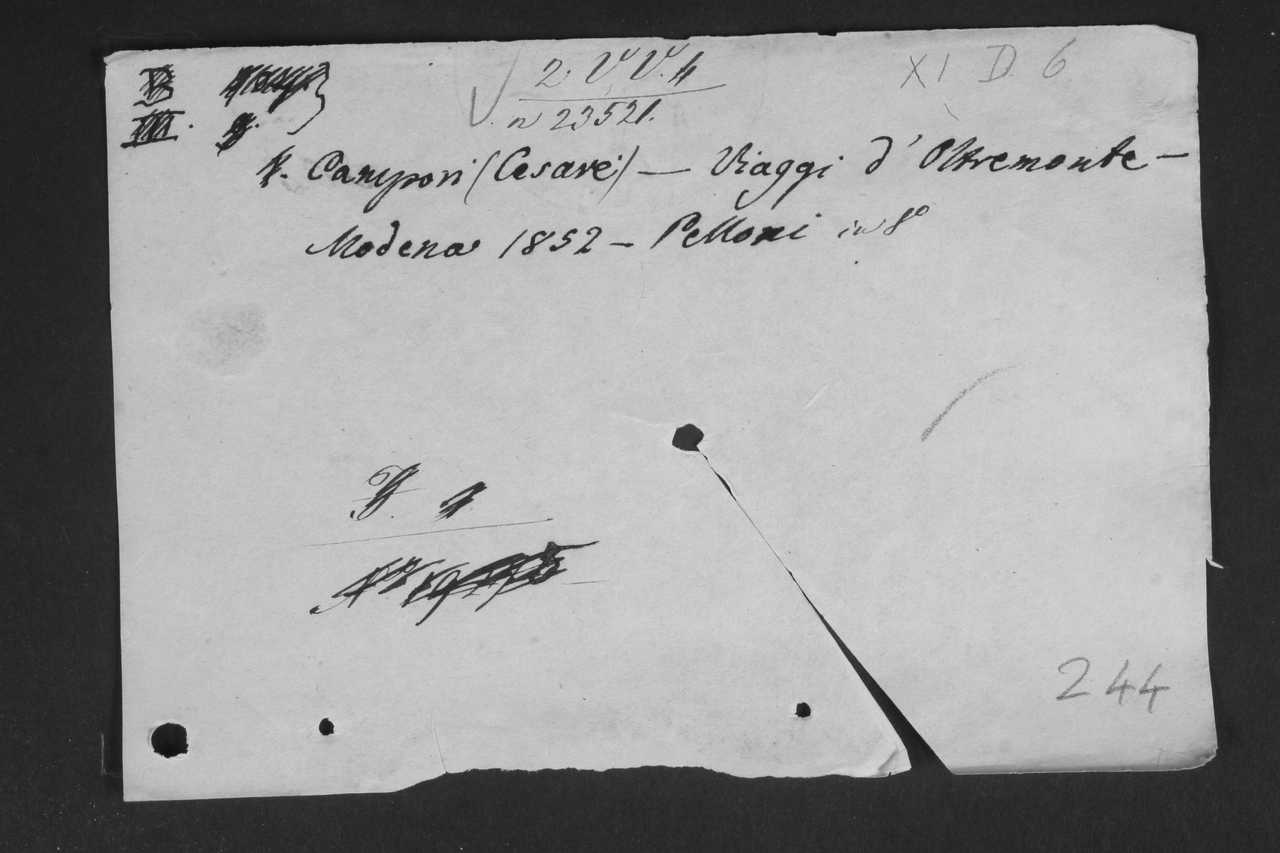 2 V V. 4
XI D. 6
n 23521.
Campori (Cesare) — Viaggi d'Oltremonte —
Modena 1852 — Pelloni in 8º
244